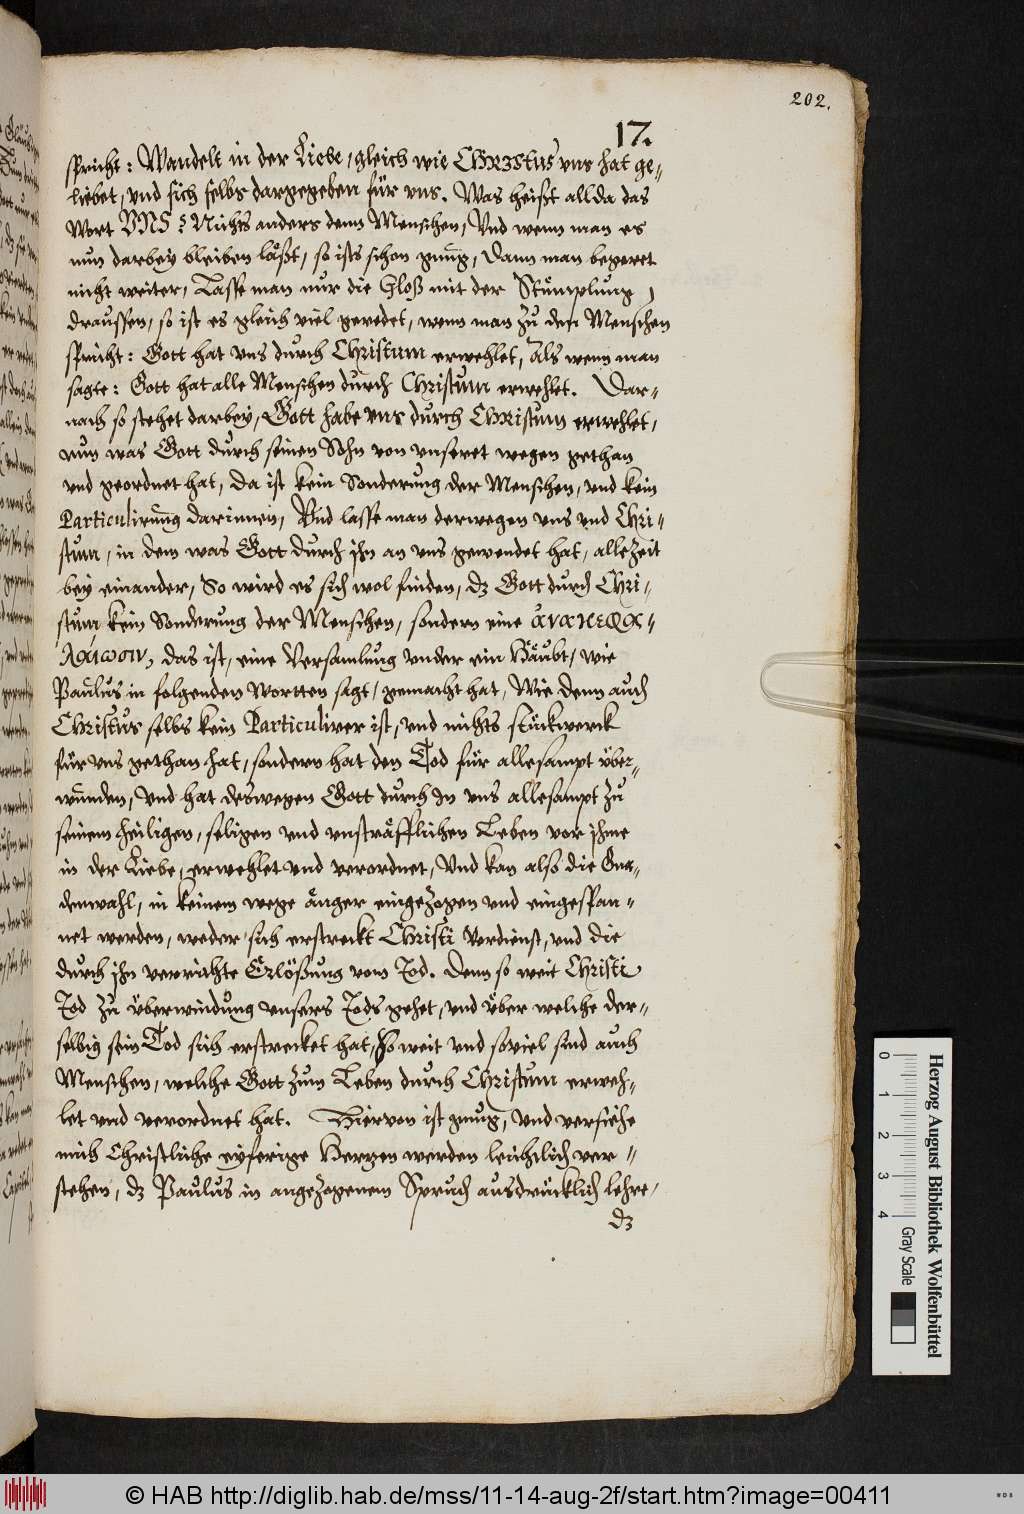 202.
17.
spricht: Wandelt in der Liebe, gleich wie CHRIStus vns hat ge-
liebet, vnd sich selbs dargegeben für vns. Was heißt allda das
Wort VNS? Nichts anders denn Menschen, Vnd wenn man es
nun darbey bleiben läßt, so ists schon gnug, Dann man begeret
nicht weiter, Lasse man nur die Gloß mit der Stümplung
draussen, so ist es gleich viel geredet, wenn man zu den Menschen
spricht: Gott hat vns durch Christum erwehlet, Als wenn man
sagte: Gott hat alle Menschen durch Christum erwehlet. Dar-
nach so stehet darbey, Gott habe vns durch CHRistum erwehlet,
nun was Gott durch seinen Sohn von vnseret wegen gethan
vnd geordnet hat, da ist kein Sonderung der Menschen, vnd kein
Particulirung darinnen, Vnd lasse man derwegen vns vnd Chri-
stum, in dem was Gott durch jhn an vns gewendet hat, allezeit
bey einander, So wird es sich wol finden, dz Gott durch Chri-
stum kein Sonderung der Menschen, sondern eine ἀνακεφα-
λαίωσιν, das ist, eine Versamlung vnder ein Häubt, wie
Paulus in folgenden Wortten sagt, gemacht hat, Wie denn auch
Christus selbs kein Particulirer ist, vnd nichts stückwerck
für vns gethan hat, sondern hat den Tod für allesampt vber-
wunden, Vnd hat deswegen Gott durch jn vns allesampt zu
seinem heiligen, seligen vnd vnsträfflichen Leben vor jhme
in der Liebe, erwehlet vnd verordnet, Vnd kan also die Gna-
denwahl, in keinem wege änger eingezogen vnd eingespan-
net werden, weder sich erstreckt Christi Verdienst, vnd die
durch jhn verrichte Erlößung vom Tod. Denn so weit Christi
Tod zu vberwindung vnsers Tods gehet, vnd vber welche der-
selbig sein Tod sich erstrecket hat, So weit vnd soviel sind auch
Menschen, welche Gott zum Leben durch Christum erweh-
let vnd verordnet hat. Hiervon ist gnug, Vnd versiehe
mich Christliche eyferige Hertzen werden leichtlich ver-
stehen, dz Paulus in angezogenem Spruch ausdrücklich lehre,
dz
Herzog August Bibliothek Wolfenbüttel
0 1 2 3 4
Gray Scale
© HAB http://diglib.hab.de/mss/11-14-aug-2f/start.htm?image=00411